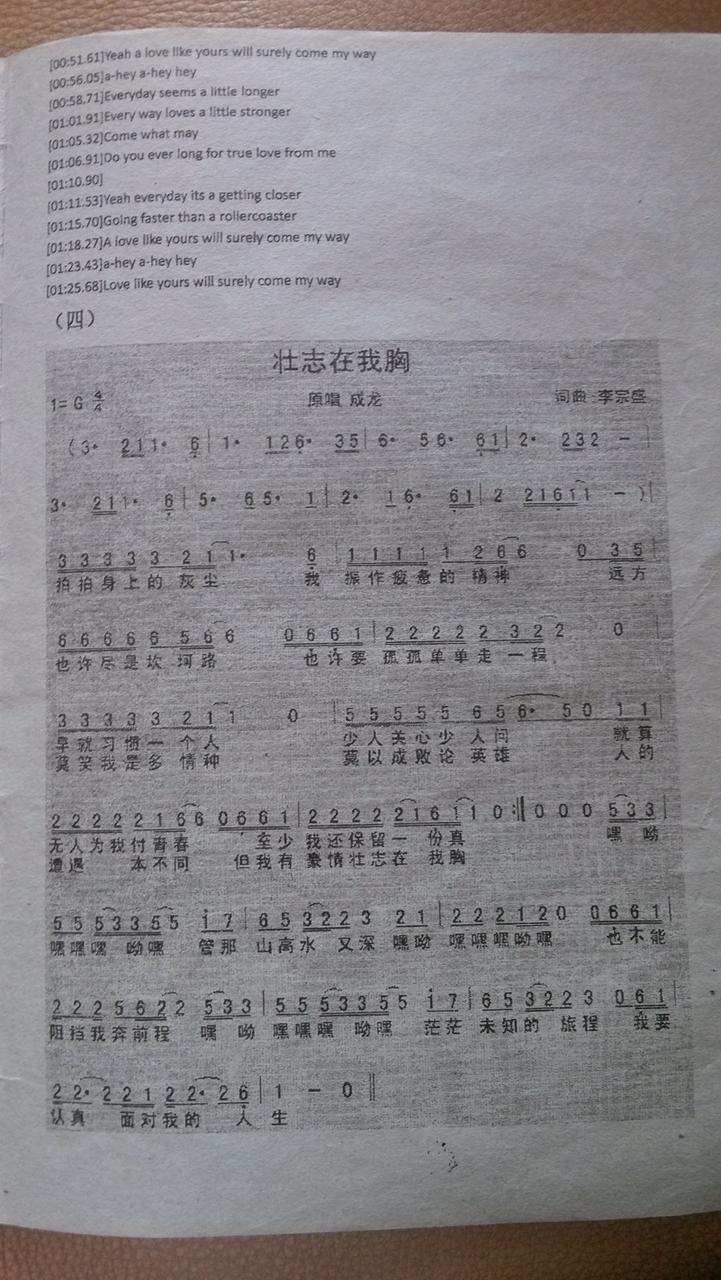 [00:51.61]Yeah a love like yours will surely come my way
[00:56.05]a-hey a-hey hey
[00:58.71]Everyday seems a little longer
[01:01.91]Every way loves a little stronger
[01:05.32]Come what may
[01:06.91]Do you ever long for true love from me
[01:10.90]
[01:11.53]Yeah everyday its a getting closer
[01:15.70]Going faster than a rollercoaster
[01:18.27]A love like yours will surely come my way
[01:23.43]a-hey a-hey hey
[01:25.68]Love like yours will surely come my way
(四)
壮志在我胸
1= G 4/4 原唱 成龙 词曲:李宗盛
(3· 211· 6| 1· 126· 35| 6· 56· 61| 2· 232 - |
3· 211· 6| 5· 65· 1| 2· 16· 61| 2 21611 - )|
3 3 3 3 3 2 1 1· 6 | 1 1 1 1 1 2 6 6 0 3 5 |
拍拍身上的 灰尘 我 振作疲惫的 精神 远方
6 6 6 6 6 5 6 6 0 6 6 1 | 2 2 2 2 2 3 2 2 0 |
也许尽是坎 坷路 也许要 孤孤单单走 一程
3 3 3 3 3 2 1 1 0 | 5 5 5 5 5 6 5 6· 5 0 1 1 |
早就习惯一 个人 少人关心少 人问 就算
莫笑我是多 情种 莫以成败论 英雄 人的
2 2 2 2 2 1 6 6 0 6 6 1 | 2 2 2 2 2 1 6 1 1 0 :‖ 0 0 0 5 3 3 |
无人为我付青春 至少 我还保留一 份真 嘿 呦
遭遇 本不同 但我有 豪情壮志在 我胸
5 5 5 3 3 5 5 i 7 | 6 5 3 2 2 3 2 1 | 2 2 2 1 2 0 0 6 6 1 |
嘿嘿嘿 呦嘿 管那 山高水 又深 嘿呦 嘿嘿嘿呦嘿 也不能
2 2 2 5 6 2 2 5 3 3 | 5 5 5 3 3 5 5 i 7 | 6 5 3 2 2 3 0 6 1 |
阻挡我奔前程 嘿 呦 嘿嘿嘿 呦嘿 茫茫 未知的 旅程 我要
2 2· 2 2 1 2 2· 2 6 | 1 - 0 ‖
认真 面对我的 人 生